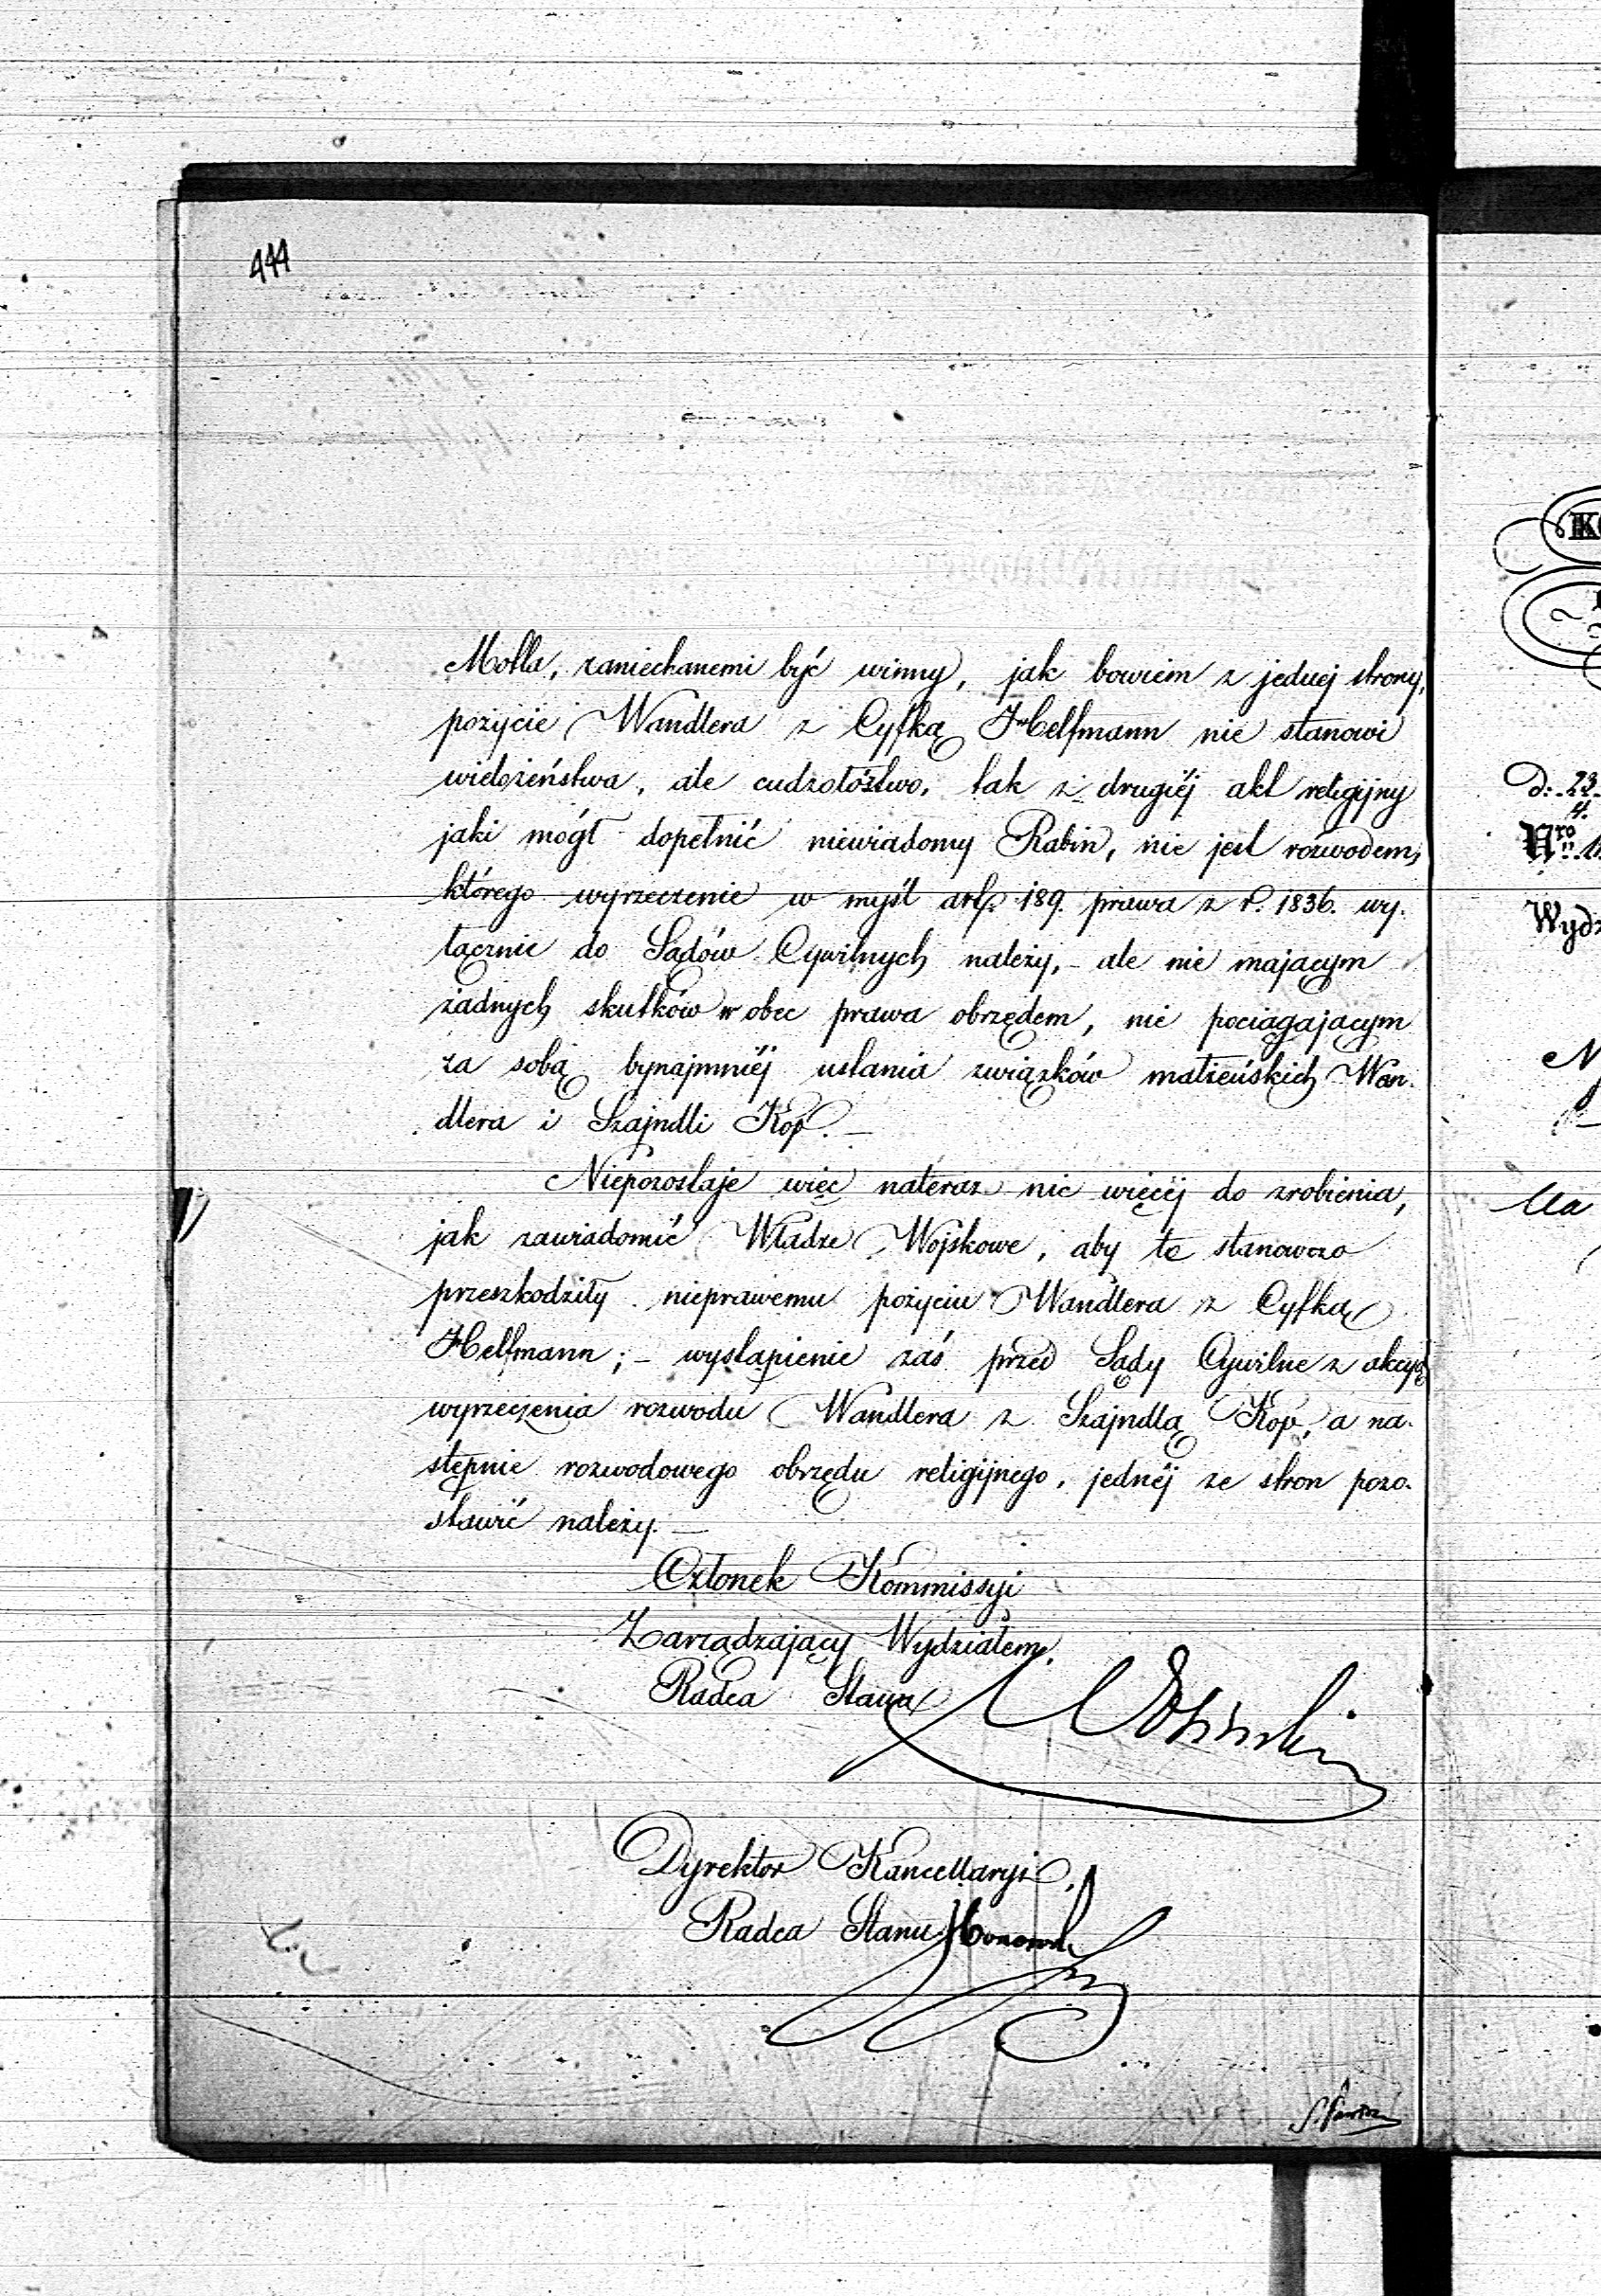 444
Motla, zaniechanemi być winny, jak bowiem z jednej strony,
pożycie Wandlera z Cyfką Helfmann nie stanowi
wielożeństwa, ale cudzołóstwo, tak z drugiéj akt religijny
jaki mógł dopełnić niewiadomy Rabin, nie jest rozwodem,
którego wyrzeczenie w myśl art. 189. prawa z r. 1836. wy-
łącznie do Sądów Cywilnych należy, - ale nie mającym
żadnych skutków w obec prawa obrzędem, nie pociągającym
za sobą bynajmniéj ustania związków małżeńskich Wan-
dlera i Szajndli Kop. -
Niepozostaje więc nateraz nic więcéj do zrobienia,
jak zawiadomić Władze Wojskowe, aby te stanowczo
przeszkodziły nieprawemu pożyciu Wandlera z Cyfką
Helfmann; - wystąpienie zaś przed Sądy Cywilne z akcyą
wyrzeczenia rozwodu Wandlera z Szajndlą Kop, a na-
stępnie rozwodowego obrzędu religijnego, jednéj ze stron pozo-
stawić należy. -
Członek Kommissyi
Zarządzający Wydziałem,
Radca Stanu
Dyrektor Kancellaryi,
Radca Stanu
D: 22
Nro
Na